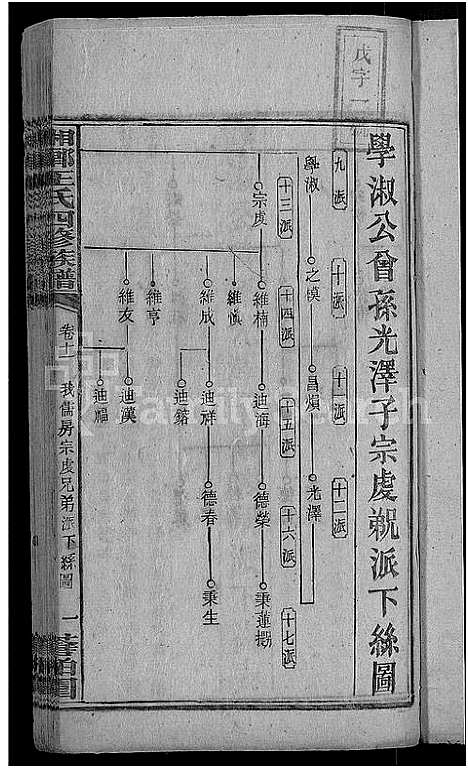 戊字一
學淑公曾孫光澤子宗虔覿派下絲圖
九派
十派
十一派
十二派
學淑
之模
昌熉
光澤
十三派
十四派
十五派
十六派
十七派
宗虔
維楠
迪海
德榮
秉蓮
維慎
維成
迪祥
德春
秉生
迪鎔
維亨
維友
迪漢
迪福
湘鄉王氏四修族譜
卷十二
我儒房宗虔兄弟派下絲圖
一
FamilySearch